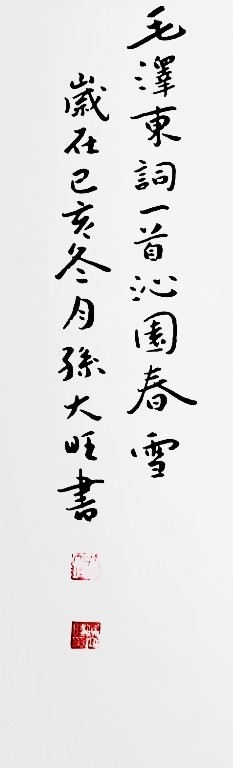 毛澤東詞一首沁園春雪
歲在己亥冬月孫大旺書